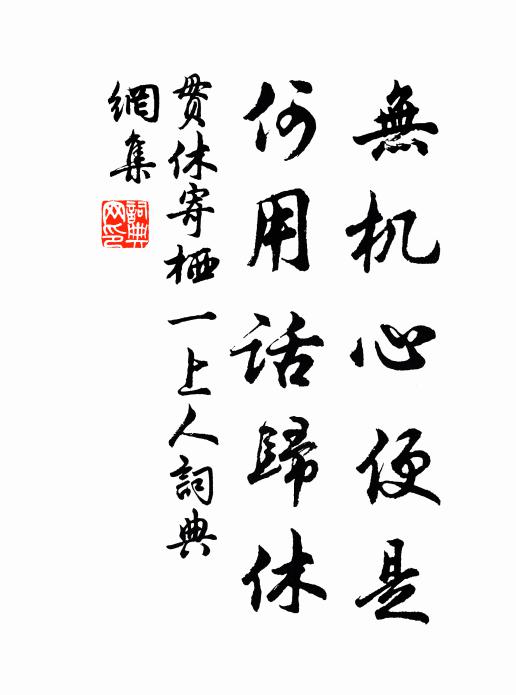 無机心便是
何用話歸休
貫休寄栖一上人詞典
網集
詞典網印